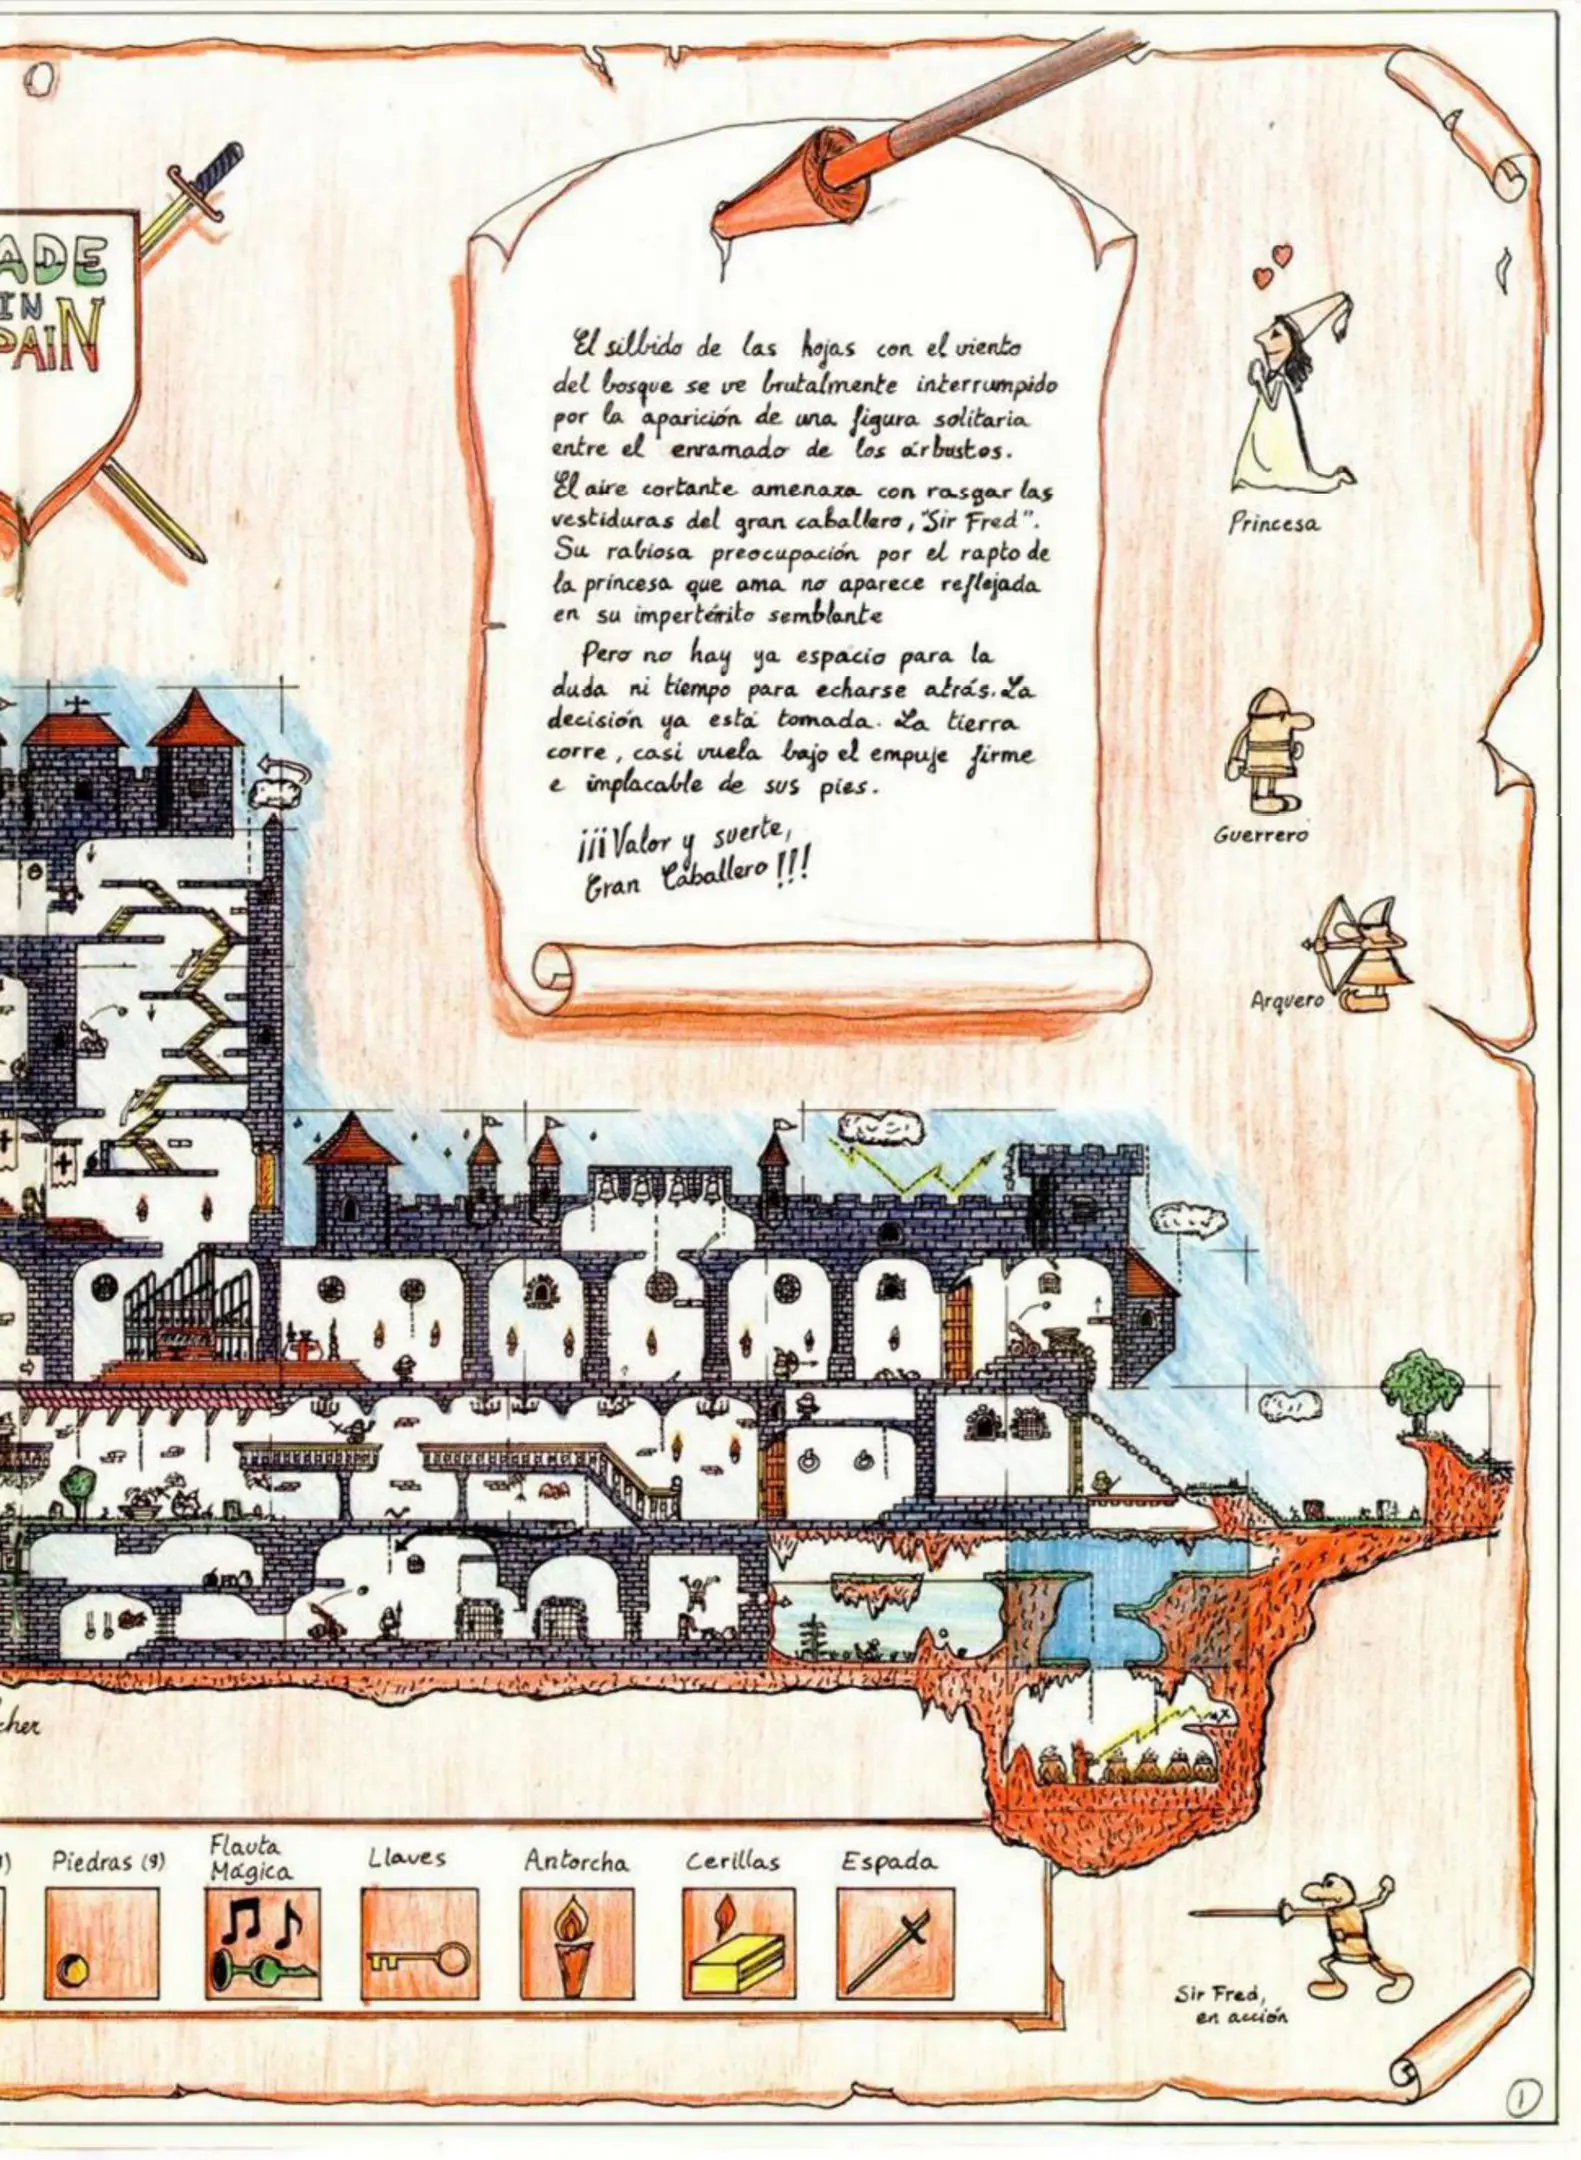 ADE
IN
PAIN
El silbido de las hojas con el viento
del bosque se ve brutalmente interrumpido
por la aparición de una figura solitaria
entre el enramado de los árbustos.
El aire cortante amenaza con rasgar las
vestiduras del gran caballero, "Sir Fred".
Su rabiosa preocupación por el rapto de
la princesa que ama no aparece reflejada
en su impertérrito semblante
Pero no hay ya espacio para la
duda ni tiempo para echarse atrás. La
decisión ya está tomada. La tierra
corre, casi vuela bajo el empuje firme
e implacable de sus pies.
¡¡¡Valor y suerte,
Gran Caballero!!!
Princesa
Guerrero
Arquero
cher
Piedras (9)
Flauta
Mágica
Llaves
Antorcha
Cerillas
Espada
Sir Fred,
en acción
1